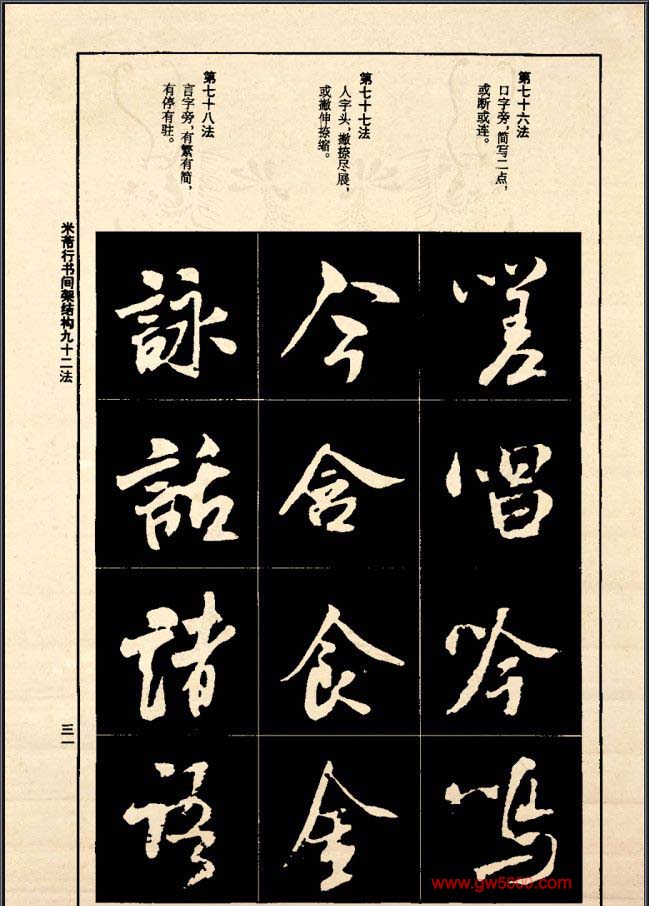 第七十六法
口字旁，简写二点，
或断或连。
嗟
唱
吟
鸣
第七十七法
人字头，撇捺尽展，
或撇伸捺缩。
今
含
食
金
第七十八法
言字旁，有繁有简，
有停有驻。
詠
話
諸
語
米芾行书间架结构九十二法
三一
www.gw5000.com